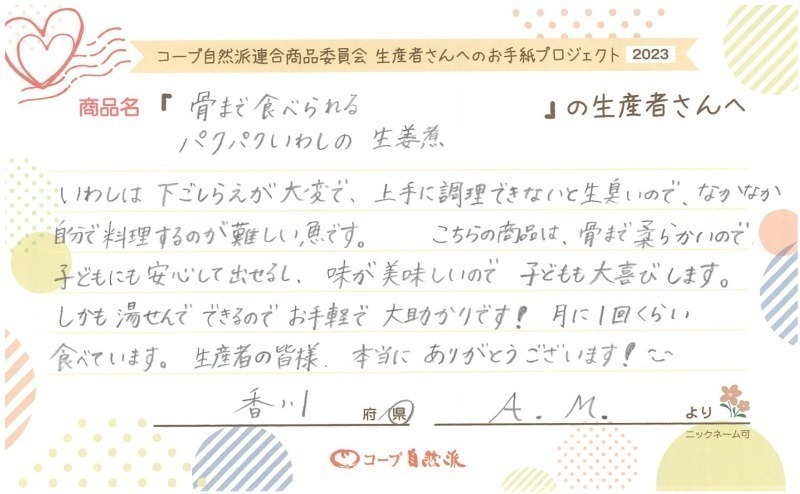 コープ自然派連合商品委員会 生産者さんへのお手紙プロジェクト 2023
商品名『 骨まで食べられる 』の生産者さんへ
パクパクいわしの 生姜煮
いわしは 下ごしらえが 大変で、上手に調理できないと生臭いので、なかなか
自分で料理するのが難しい魚です。 こちらの商品は、骨まで柔らかいので
子どもにも安心して出せるし、味が美味しいので 子どもも大喜びします。
しかも 湯せんで できるので お手軽で 大助かりです! 月に1回くらい
食べています。 生産者の皆様、本当に ありがとうございます!
香川 府 県 A. M. より
ニックネーム可
コープ自然派